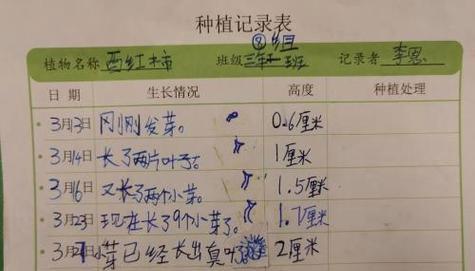 种植记录表
⑧组
植物名称 西红柿 班级 三年 班 记录者 李恩
日期 生长情况 高度 种植处理
3月13日 冈冈刂发芽。 0.6厘米
3月14日 长了两片叶子。 1厘米
3月16日 又长了两个小芽。 1.5厘米
3月23日 现在长了9个小芽了。 1.7厘米
3月 日 小芽已经长出真叶 2厘米